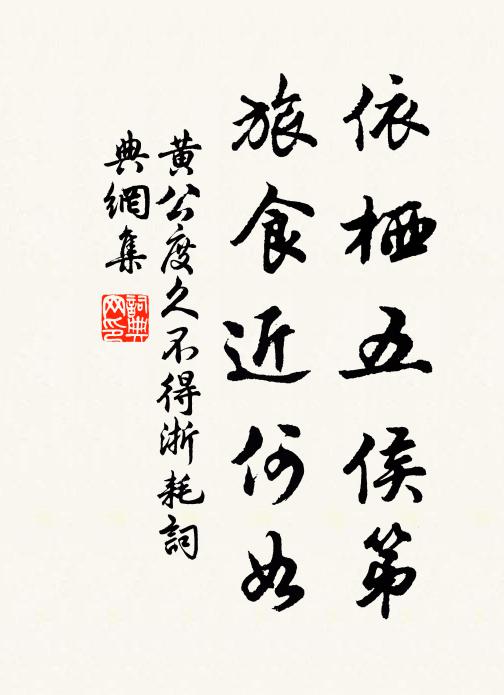 依栖五侯第
旅食近何如
黄公度久不得浙耗詞
典網集
詞典
网印